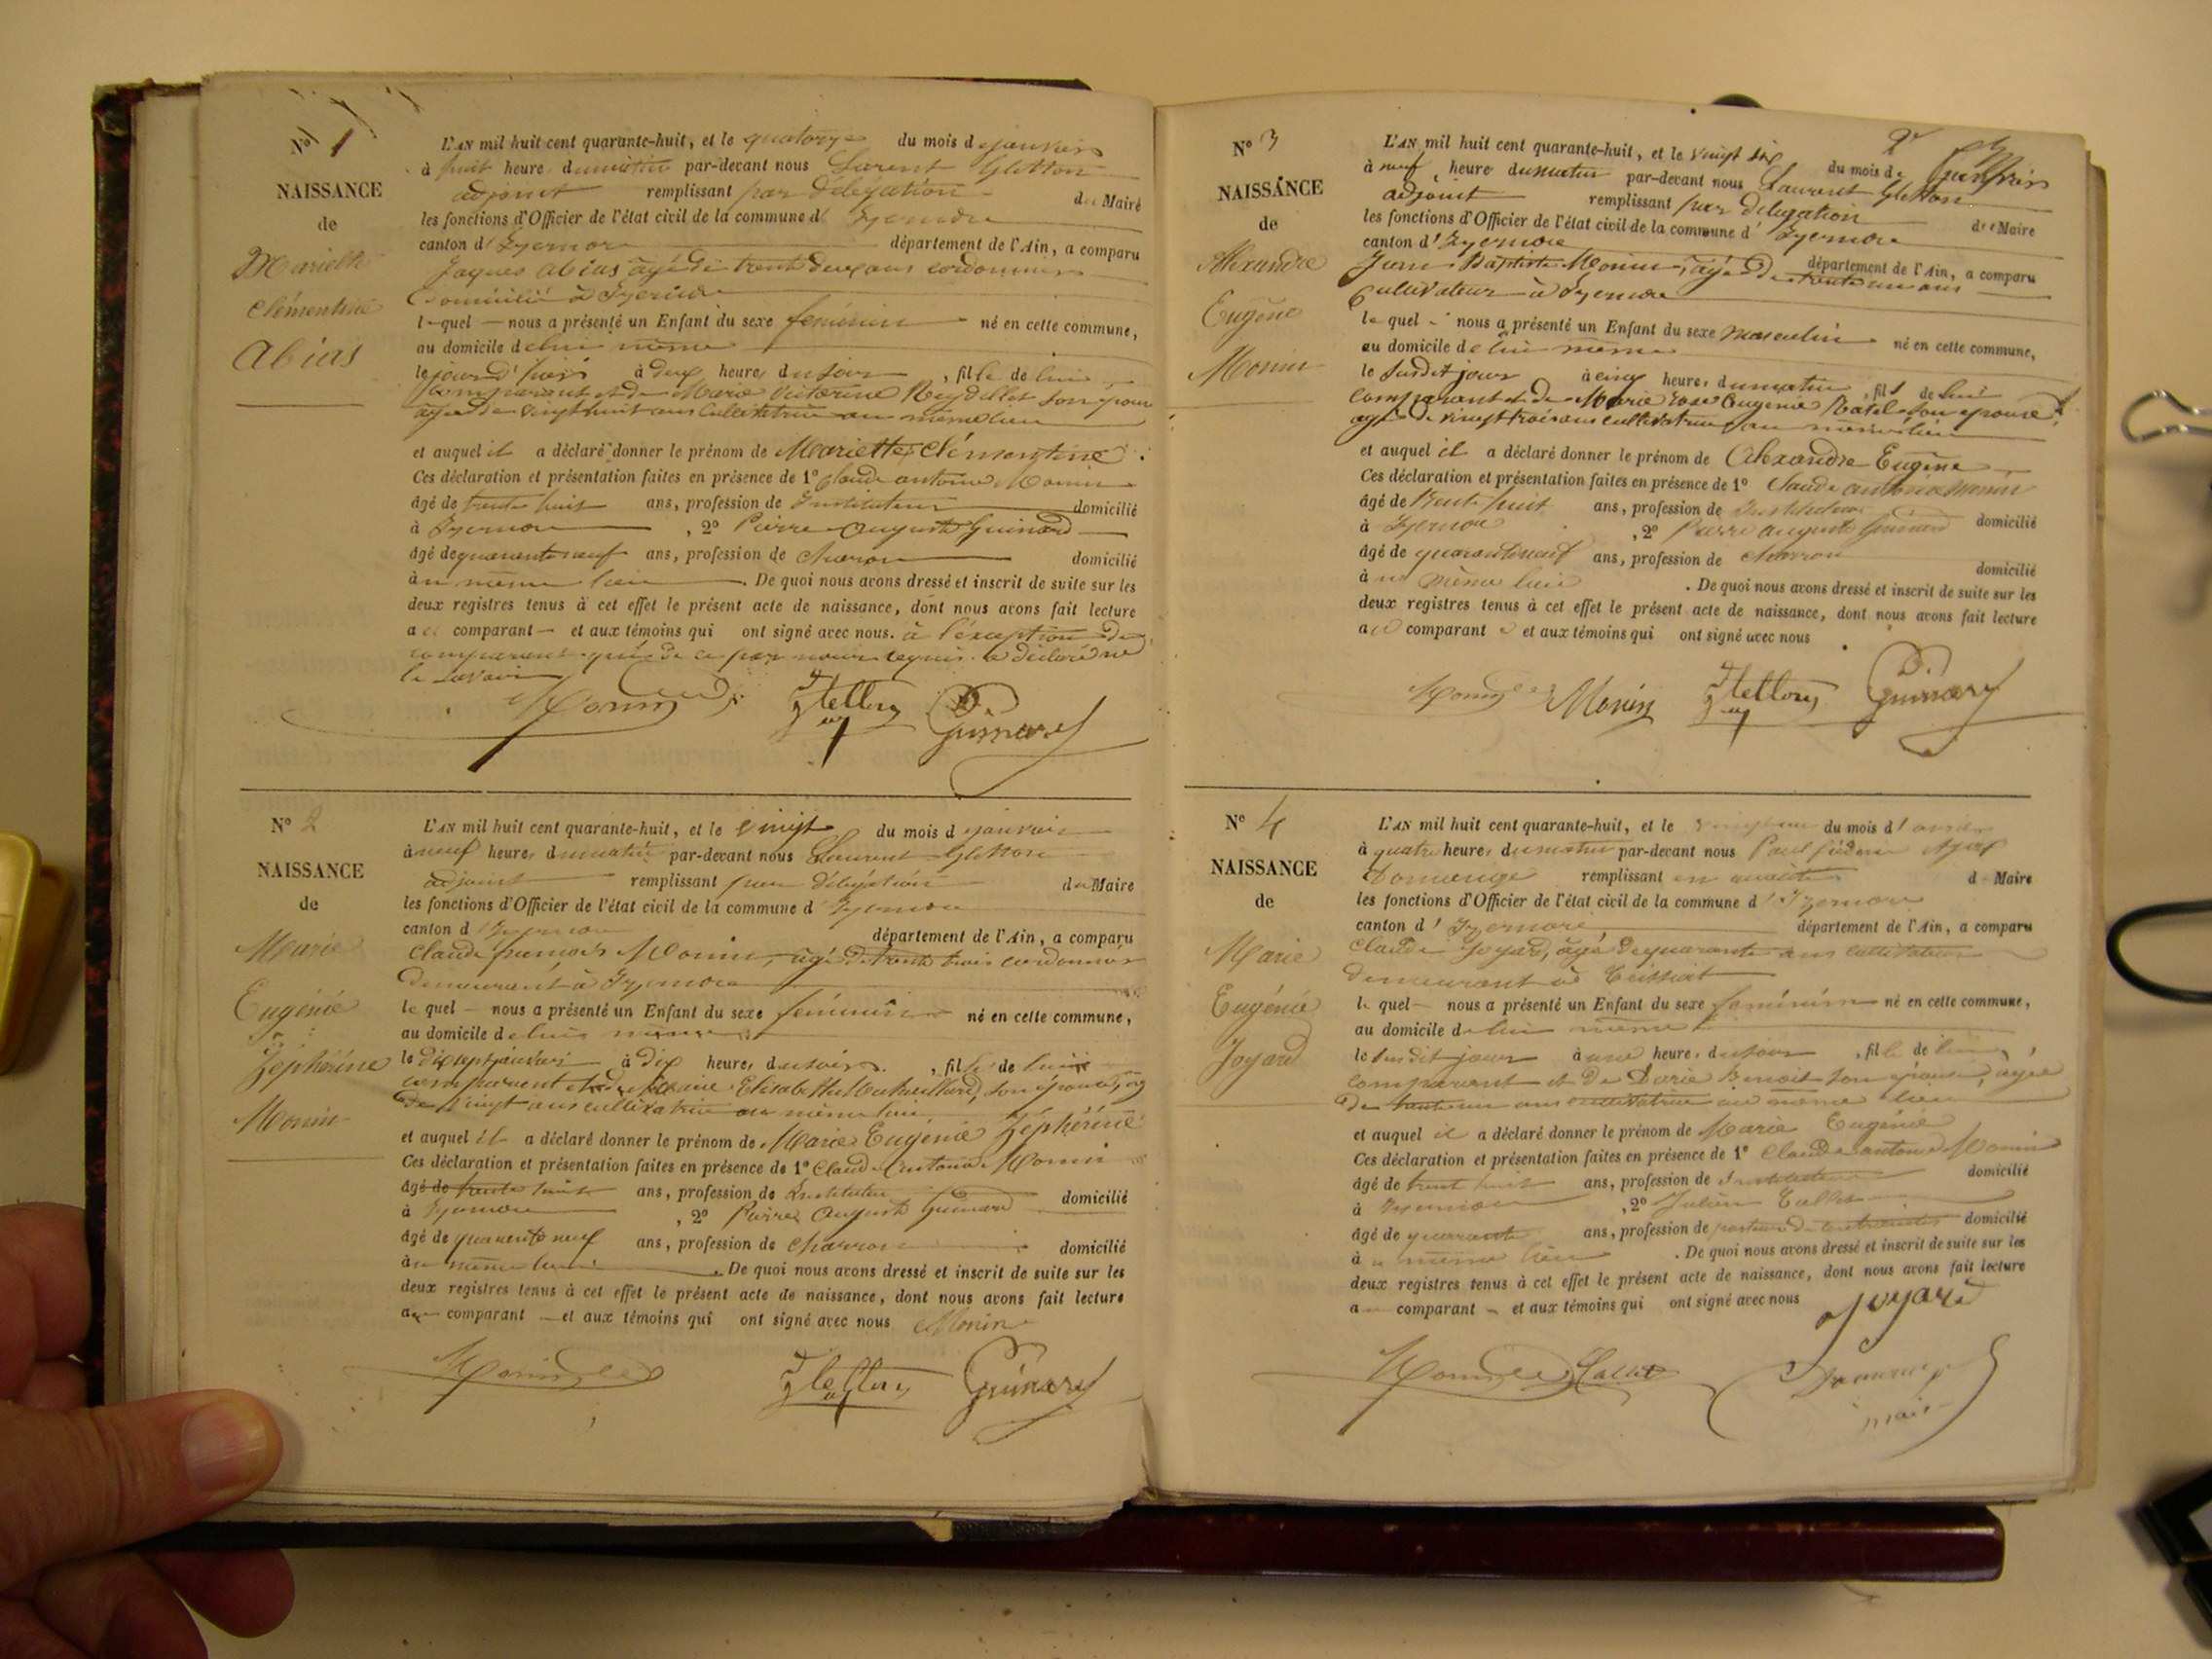 N° 1
NAISSANCE
de
Mariette
Clémentine
Abias
L'AN mil huit cent quarante-huit, et le quatorze du mois de janvier
à huit heures du matin par-devant nous Laurent Gletton
adjoint remplissant par délégation du Maire
les fonctions d'Officier de l'état civil de la commune d' Izernore
canton d' Izernore département de l'Ain, a comparu
Jaques Abias âgé de trente deux ans cordonnier
domicilié à Izernore
lequel nous a présenté un Enfant du sexe féminin né en cette commune,
au domicile de lui même
le jour d'hier à deux heures du soir, fille de lui
comparant et de Marie Victorine son épouse
âgée de vingt huit ans cultivatrice au même lieu
et auquel il a déclaré donner le prénom de Mariette Clémentine.
Ces déclaration et présentation faites en présence de 1° Claude antoine Monin
âgé de trente huit ans, profession de Instituteur domicilié
à Izernore, 2° Pierre Auguste Guinard
âgé de quarante neuf ans, profession de charon domicilié
au même lieu. De quoi nous avons dressé et inscrit de suite sur les
deux registres tenus à cet effet le présent acte de naissance, dont nous avons fait lecture
au comparant et aux témoins qui ont signé avec nous. à l'exception du
comparant qui de ce par nous requis a déclaré ne
le savoir
Monin Gletton Guinard
N° 2
NAISSANCE
de
Marie
Eugénie
Zéphérine
Monin
L'AN mil huit cent quarante-huit, et le vingt du mois d janvier
à neuf heures du matin par-devant nous Laurent Gletton
adjoint remplissant par délégation du Maire
les fonctions d'Officier de l'état civil de la commune d' Izernore
canton d' Izernore département de l'Ain, a comparu
Claude françois Monin, âgé de trente trois cordonnier
demeurant à Izernore
lequel nous a présenté un Enfant du sexe féminin né en cette commune,
au domicile de lui même
le dix sept janvier à dix heures du soir, fille de lui
comparant et de Marie Elisabeth son épouse, âg
de vingt ans cultivatrice au même lieu
et auquel il a déclaré donner le prénom de Marie Eugénie Zéphérine
Ces déclaration et présentation faites en présence de 1° Claude Antoine Monin
âgé de trente huit ans, profession de Instituteur domicilié
à Izernore, 2° Pierre Auguste Guinard
âgé de quarante neuf ans, profession de charron domicilié
au même lieu. De quoi nous avons dressé et inscrit de suite sur les
deux registres tenus à cet effet le présent acte de naissance, dont nous avons fait lecture
au comparant et aux témoins qui ont signé avec nous Monin
Monin Gletton Guinard
2
N° 3
NAISSANCE
de
Alexandre
Eugène
Monin
L'AN mil huit cent quarante-huit, et le vingt six du mois de Janvier
à neuf heure du matin par-devant nous Laurent Gletton
adjoint remplissant par délégation du Maire
les fonctions d'Officier de l'état civil de la commune d' Izernore
canton d' Izernore département de l'Ain, a comparu
Jean Baptiste Monin, âgé de trente un ans
Cultivateur à Izernore
lequel nous a présenté un Enfant du sexe masculin né en cette commune,
au domicile de lui même
le susdit jour à cinq heures du matin, fils de lui
comparant et de Marie rose Eugénie Ratel son épouse
âgé de vingt trois ans cultivatrice au même lieu
et auquel il a déclaré donner le prénom de Alexandre Eugène
Ces déclaration et présentation faites en présence de 1° Claude antoine Monin
âgé de trente huit ans, profession de Instituteur domicilié
à Izernore, 2° Pierre auguste Guinard
âgé de quarante neuf ans, profession de charron domicilié
au même lieu. De quoi nous avons dressé et inscrit de suite sur les
deux registres tenus à cet effet le présent acte de naissance, dont nous avons fait lecture
au comparant et aux témoins qui ont signé avec nous
Monin Monin Gletton Guinard
N° 4
NAISSANCE
de
Marie
Eugénie
Joyard
L'AN mil huit cent quarante-huit, et le du mois d'
à quatre heures du matin par-devant nous Paul
Domenge remplissant en qualité d Maire
les fonctions d'Officier de l'état civil de la commune d' Izernore
canton d' Izernore, département de l'Ain, a comparu
Claude Joyard, âgé de quarante ans cultivateur
demeurant à Ceissiat
lequel nous a présenté un Enfant du sexe féminin né en cette commune,
au domicile de lui même
le susdit jour à une heure, du, fille de lui
comparant et de Marie Benoit son épouse, âgée
de trente un ans cultivatrice au même lieu
et auquel il a déclaré donner le prénom de Marie Eugénie
Ces déclaration et présentation faites en présence de 1° Claude antoine Monin
âgé de trent huit ans, profession de Instituteur domicilié
à Izernore, 2° Julien
âgé de quarante ans, profession de domicilié
au même lieu. De quoi nous avons dressé et inscrit de suite sur les
deux registres tenus à cet effet le présent acte de naissance, dont nous avons fait lecture
au comparant et aux témoins qui ont signé avec nous Joyard
Monin Domenge
maire